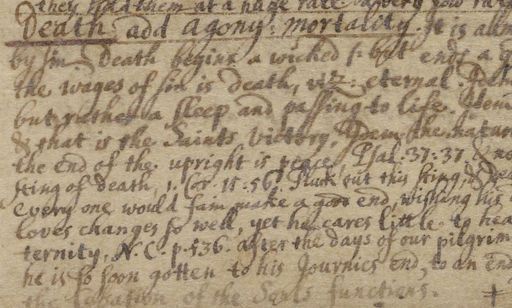 they had them at a huge rate
Death. add agony: mortality. It is
by sin Death begins a wicked but ends a
the wages of sin is death, viz: eternal.
but rather a sleep and passing to life.
& that is the Saints victory,
the end of the upright is peace. Psal: 37: 37. &
sting of death, 1. Cor. 15. 56. Pluck out this sting, &
every one would fain make a good end, wishing his
loves changes so well, yet he cares little to
ternity, N. C. p. 536. after the days of our
he is so soon gotten to his Journies end, to an end
the of the functions.